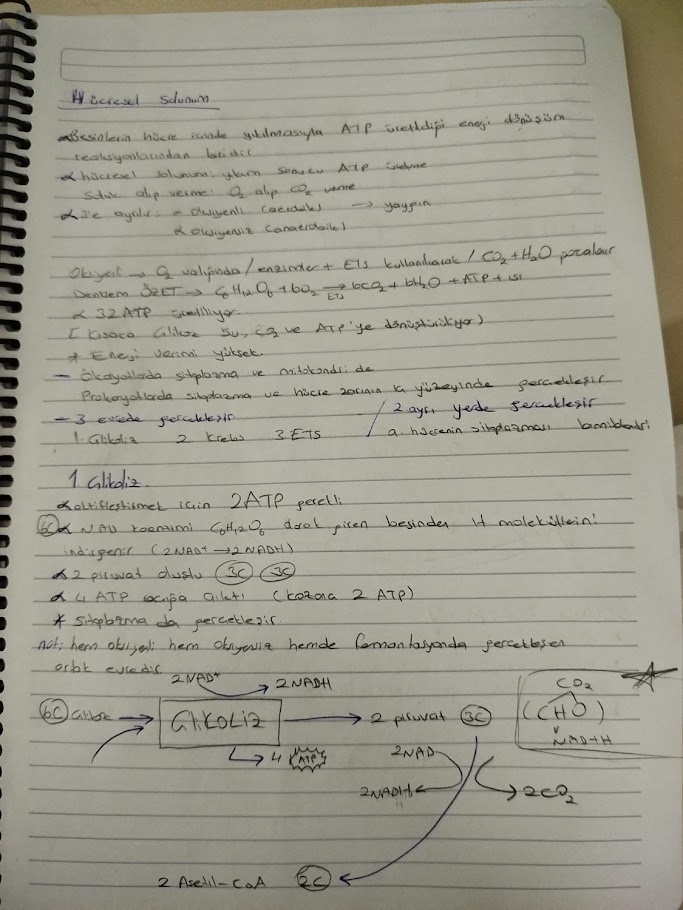 Hücresel solunum
Besinlerin hücre içinde yıkılmasıyla ATP üretildiği enerji dönüşüm
reaksiyonlarından biridir
hücresel solunum: yıkım sonucu ATP üretme
Soluk alıp verme: O₂ alıp CO₂ verme
2'e ayrılır: Oksijenli (aerobik) → yaygın
Oksijensiz (anaerobik)
Oksijenli → O₂ varlığında / enzimler + ETS kullanılarak / CO₂ + H₂O
Denklem ÖZET → C₆H₁₂O₆ + 6O₂ → ETS 6CO₂ + 6H₂O + ATP + ısı
32 ATP üretiliyor.
[Kısaca Glikoz su, CO₂ ve ATP'ye dönüştürülüyor)
* Enerji verimi yüksek.
– Ökaryotlarda sitoplazma ve mitokondri de
Prokaryotlarda sitoplazma ve hücre zarının iç yüzeyinde gerçekleşir
– 3 evrede gerçekleşir / 2 ayrı yerde gerçekleşir
1. Glikoliz 2 Krebs 3. ETS / a. hücrenin sitoplazması b. mitokondri
1. Glikoliz.
aktifleştirmek için 2 ATP gerekli
6C NAD koenzimi C₆H₁₂O₆ olarak giren besinden H moleküllerini
indirgenir (2NAD⁺ → 2NADH)
2 piruvat oluştu 3C 3C
4 ATP açığa çıktı (kazanç 2 ATP)
* Sitoplazma da gerçekleşir.
not: hem oksijenli hem oksijensiz hemde fermantasyonda gerçekleşen
ortak evredir
2NAD⁺ → 2NADH
6C Glikoz → GLİKOLİZ → 2 piruvat 3C
4 ATP
CO₂
(CHO)
NAD+H
2NAD
2NADH
2CO₂
2 Asetil-CoA 2C